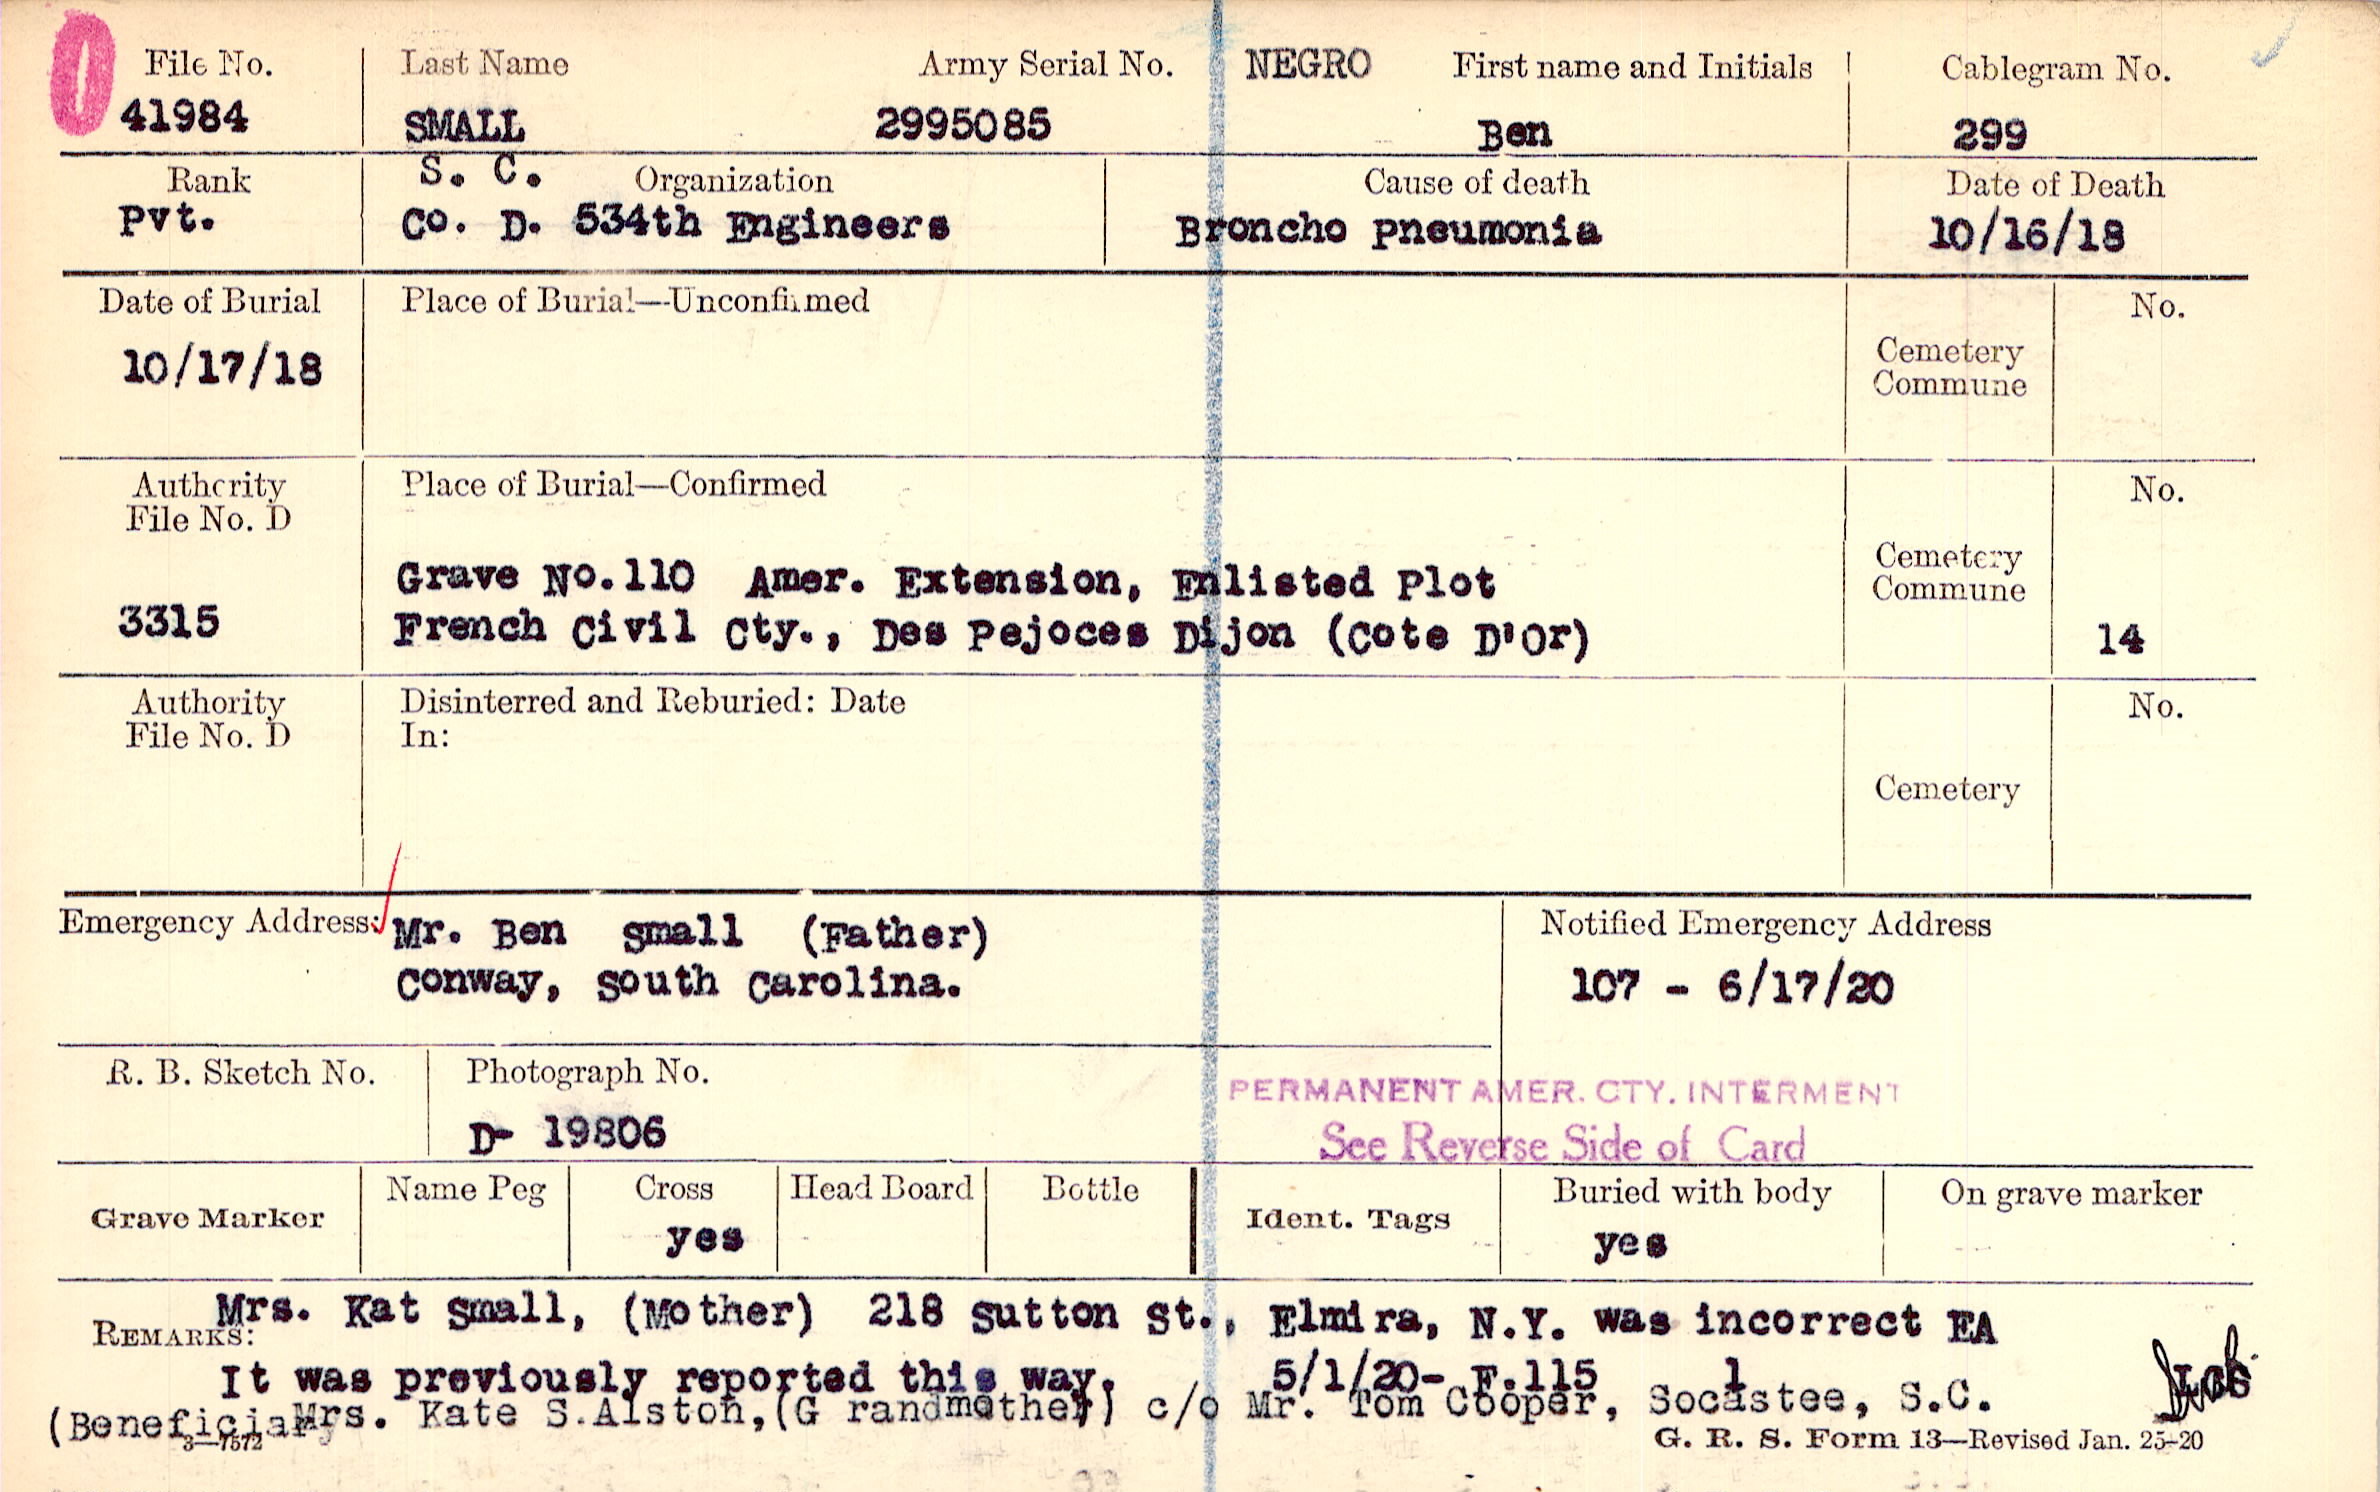 File No. Last Name Army Serial No. NEGRO First name and Initials Cablegram No.
41984 SMALL 2995085 Ben 299
Rank S. C. Organization Cause of death Date of Death
Pvt. Co. D. 534th Engineers Broncho Pneumonia 10/16/18
Date of Burial Place of Burial—Unconfirmed No.
10/17/18 Cemetery
Commune
Authority Place of Burial—Confirmed No.
File No. D
Grave No.110 Amer. Extension, Enlisted Plot Cemetery
Commune
3315 French Civil Cty., Des Pejoces Dijon (Cote D'Or) 14
Authority Disinterred and Reburied: Date No.
File No. D In:
Cemetery
Emergency Address: Mr. Ben Small (Father) Notified Emergency Address
Conway, South Carolina. 107 - 6/17/20
R. B. Sketch No. Photograph No.
PERMANENT AMER. CTY. INTERMENT
D- 19806 See Reverse Side of Card
Grave Marker Name Peg Cross Head Board Bottle Ident. Tags Buried with body On grave marker
yes yes
Mrs. Kat Small, (Mother) 218 Sutton St., Elmira, N.Y. was incorrect EA
REMARKS:
It was previously reported this way. 5/1/20- F.115 1
(Beneficiary Mrs. Kate S.Alston,(G randmother) c/o Mr. Tom Cooper, Socastee, S.C.
3—7572 G. R. S. Form 13—Revised Jan. 25-20